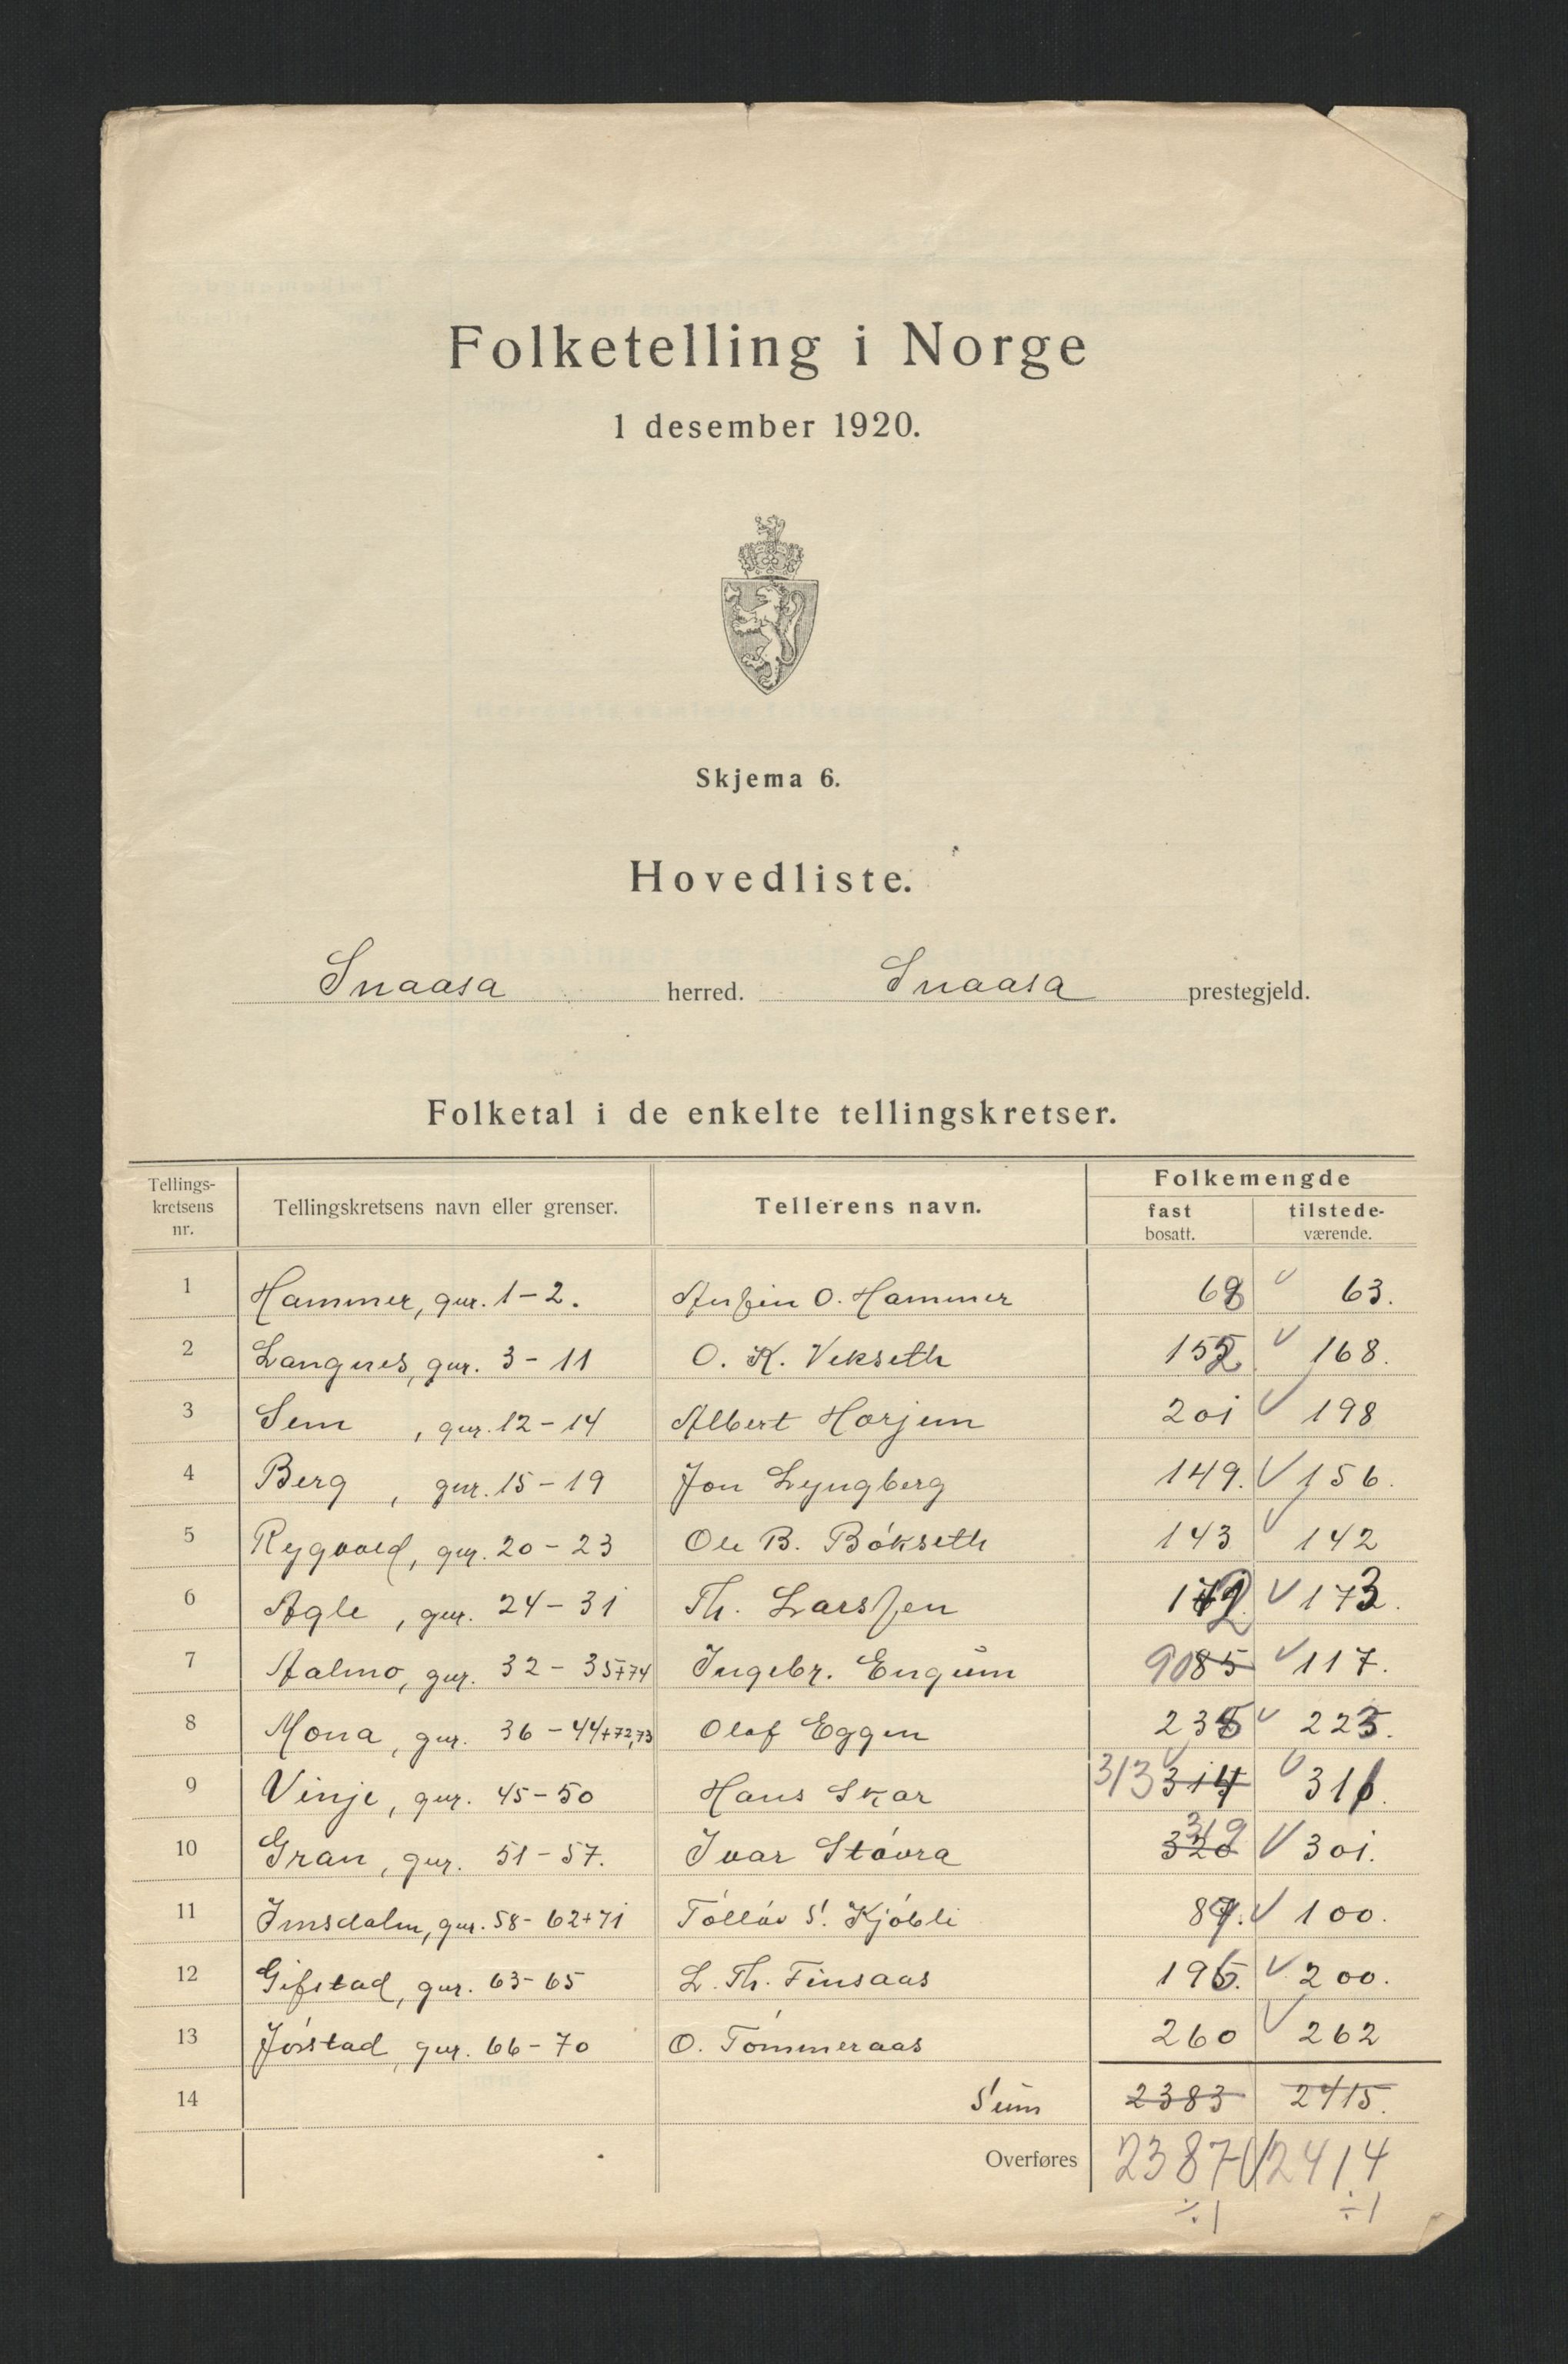 Folketelling i Norge
1 desember 1920.
Skjema 6.
Hovedliste.
Snaasa herred. Snaasa prestegjeld.
Folketal i de enkelte tellingskretser.
Tellings-
kretsens
nr.
Tellingskretsens navn eller grenser.
Tellerens navn.
Folkemengde
fast
bosatt.
tilstede-
værende.
1 Hammer, gnr. 1-2. Anfin O. Hammer 68 63.
2 Langnes, gnr. 3-11 O. K. Vekseth 152 168.
3 Sem, gnr. 12-14 Albert Horjem 201 198
4 Berg, gnr. 15-19 Jon Lyngberg 149. 156.
5 gnr. 20-23 Ole B. Bókseth 143 142
6 Agle, gnr. 24-31 Th. Larssen 172 173.
7 Aalmo, gnr. 32-35+74 Ingebr. Engum 90 85 117.
8 Mona, gnr. 36-44+72,73 Olaf Eggen 223.
9 Vinje, gnr. 45-50 Hans Skar 313 314
10 Gran, gnr. 51-57. Ivar Stóvra 319 320 301.
11 Imsdalen, gnr. 58-62+71 Tólláv S. Kjóbli 100.
12 Gifstad, gnr. 63-65 L. Th. Finsaas 200.
13 Jórstad, gnr. 66-70 O. Tómmeraas 260 262
14 Sum 2383 2415.
Overføres 2387 2414
÷1 ÷1